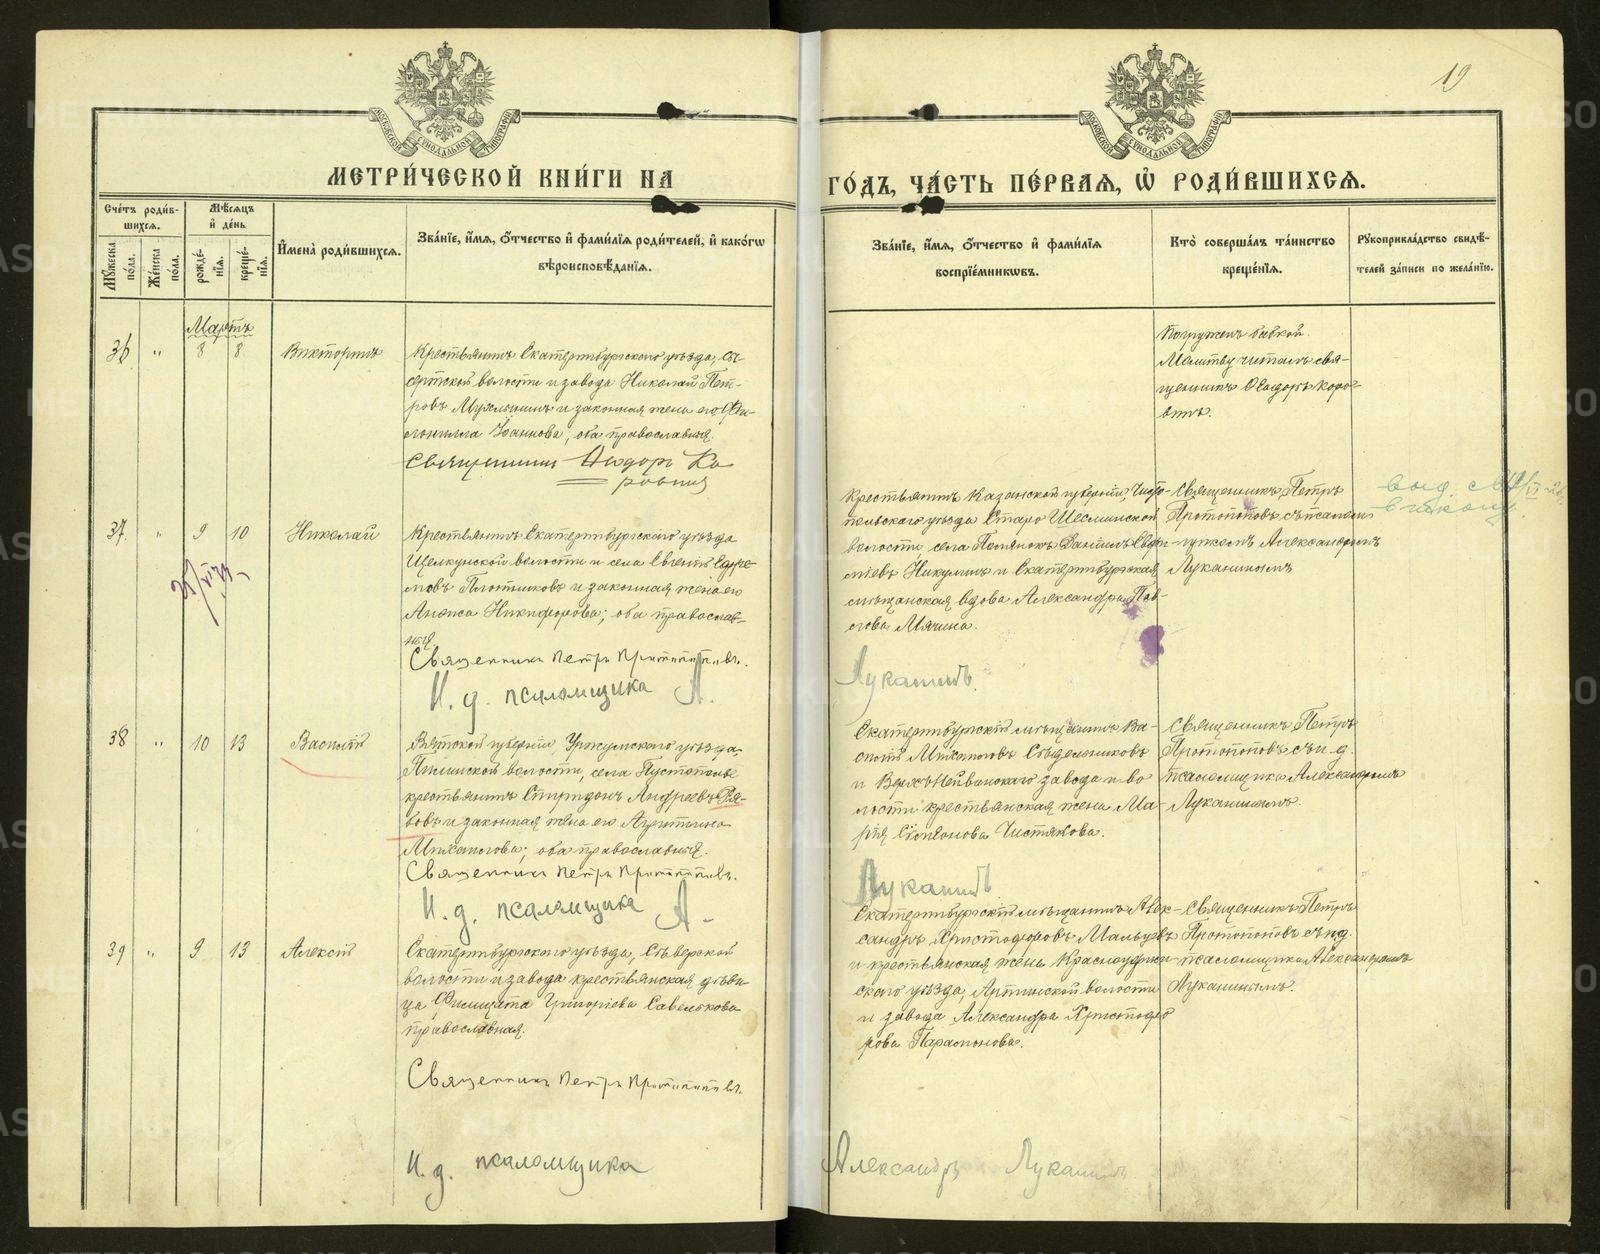 19
МОСКОВСКОЙ СѴНОДАЛЬНОЙ ТИПОГРАФІИ
МОСКОВСКОЙ СѴНОДАЛЬНОЙ ТИПОГРАФІИ
МЕТРИ́ЧЕСКОЙ КНИ́ГИ НА
ГО́ДЪ, ЧА́СТЬ ПЕ́РВАЯ, Ѽ РОДИ́ВШИХСЯ.
Сче́тъ роди́в-
шихся.
Мꙋ́жеска по́ла.
Же́нска по́ла.
Мѣ́сяцъ
и҆ де́нь
рожде́-
нія.
креще́-
нія.
И҆мена̀ роди́вшихся.
Зва́ніе, и҆́мя, ѻ҆́тчество и҆ фами́лія роди́телей, и҆ како́гѡ
вѣроисповѣ́данія.
Зва́ніе, и҆́мя, ѻ҆́тчество и҆ фами́лія
воспріе́мникѡвъ.
Кто̀ соверша́лъ та́инство
креще́нія.
Рꙋкоприкла́дство свидѣ́-
телей за́писи по жела́нію.
Мартъ
36 " 8 8 Викторинъ
Крестьянинъ Екатеринбургскаго уѣзда, Сы-
сертской волости и завода Николай Пет-
ровъ Мухлынинъ и законная жена его Фи-
Іоаннова, оба православныя.
Священникъ Ѳеодоръ Ко
ровинъ
Погруженъ бабкой.
Молитву читалъ свя-
щенникъ Ѳеодоръ Коро-
винъ.
37. " 9 10 Николай
Крестьянинъ Екатеринбургскаго уѣзда
Щелкунской волости и села Евгеній Ефре-
мовъ Плотниковъ и законная жена его
Анѳиса Никифорова; оба православ-
ныя.
Священникъ Петръ Протопоповъ.
И. д. псаломщика А.
Крестьянинъ Казанской губерніи, Чисто-
польскаго уѣзда Старо Шешминской
волости села Полянокъ Даніилъ Евфи-
міевъ Никулинъ и Екатеринбургская
мѣщанская вдова Александра Пав-
лова Мячина.
Лукашинъ.
Священникъ Петръ
Протопоповъ съ псалом-
щикомъ Александромъ
Лукашинымъ
38 " 10 13 Василій
Вятской губерніи, Уржумскаго уѣзда
волости, села Пустополье
крестьянинъ Спиридонъ Андреевъ Ря-
бовъ и законная жена его Агриппина
Михаилова; оба православныя.
Священникъ Петръ Протопоповъ.
И. д. псаломщика А.
Екатеринбургскій мѣщанинъ Ва-
силій Михаиловъ Сѣдельниковъ
и Верхъ Нейвинскаго завода и во-
лости крестьянская жена Ма-
рія Симеонова Чистякова.
Лукашинъ
Священникъ Петръ
Протопоповъ съ и. д.
псаломщика Александромъ
Лукашинымъ.
39 " 9 13 Алексій
Екатеринбургскаго уѣзда, Сѣверской
волости и завода крестьянская дѣви-
ца Филицата Григоріева Савелькова
православная.
Священникъ Петръ Протопоповъ.
И. д. псаломщика
Екатеринбургскій мѣщанинъ Алек-
сандръ Христофоровъ Мальцевъ
и крестьянская жена Красноуфим-
скаго уѣзда, Артинской волости
и завода Александра Христофо
рова Парамонова.
Священникъ Петръ
Протопоповъ съ и. д.
псаломщика Александромъ
Лукашинымъ.
Александръ Лукашинъ
METRIKI.GASO-URAL.RU